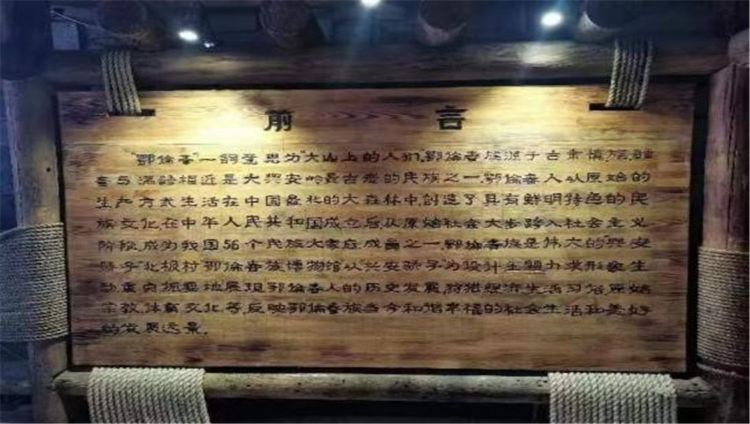 前言
"鄂伦春"一词意思为"大山上的人们",鄂伦春族源于古肃慎族,语
言与满语相近是大兴安岭最古老的民族之一.鄂伦春人从原始的
生产方式生活在中国最北的大森林中创造了具有鲜明特色的民
族文化.在中华人民共和国成立后从原始社会大步跨入社会主义
阶段,成为我国56个民族大家庭成员之一.鄂伦春族是伟大的"兴安
骄子"北极村鄂伦春族博物馆以兴安骄子为设计主题力求形象生
动重点扼要地展现鄂伦春人的历史发展,狩猎经济生活习俗原始
宗教,体育文化等,反映鄂伦春族当今和谐幸福的社会生活和美好
的发展远景.